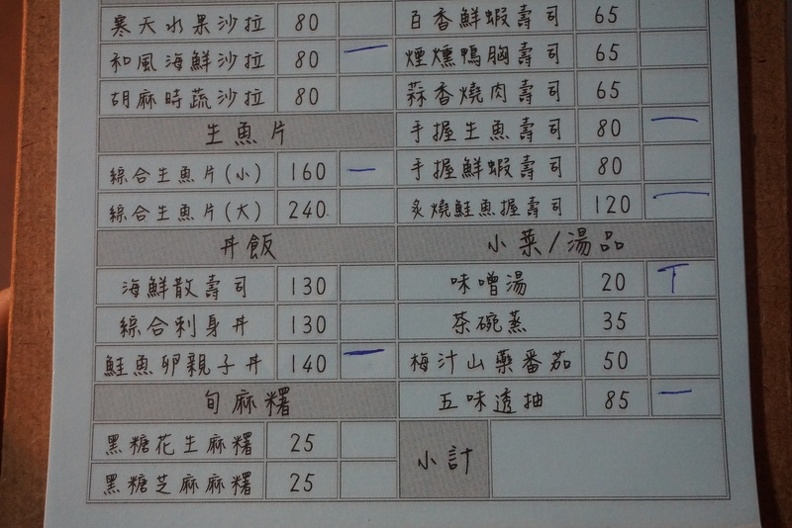 寒天水果沙拉 80
和風海鮮沙拉 80 一
胡麻時蔬沙拉 80
生魚片
綜合生魚片(小) 160 一
綜合生魚片(大) 240
丼飯
海鮮散壽司 130
綜合刺身丼 130
鮭魚卵親子丼 140 一
旬麻糬
黑糖花生麻糬 25
黑糖芝麻麻糬 25
百香鮮蝦壽司 65
煙燻鴨胸壽司 65
蒜香燒肉壽司 65
手握生魚壽司 80 一
手握鮮蝦壽司 80
炙燒鮭魚握壽司 120 一
小菜/湯品
味噌湯 20 丅
茶碗蒸 35
梅汁山藥番茄 50
五味透抽 85 一
小計